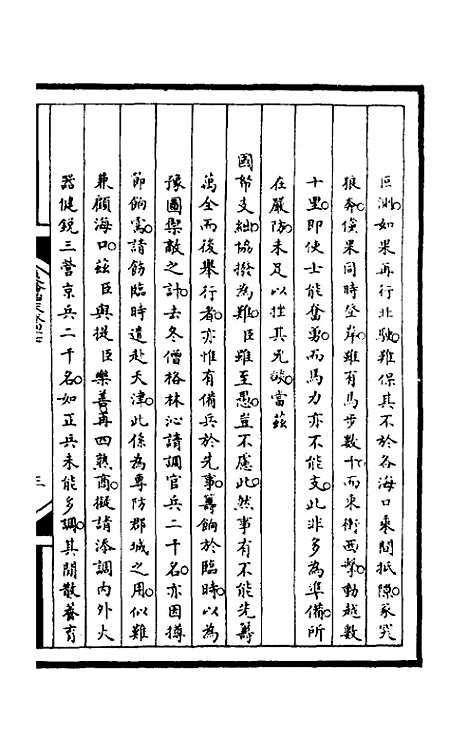 叵測如果再行北駛難保其不於各海口乘間抵隙豕突
狼奔倘果同時登岸雖有馬步數十而東衝西擊動越數
十里即使士能奮勇而馬力亦不能支此非多為準備所
在嚴防未足以挫其兇燄當茲
國帑支絀協撥為難臣雖至愚豈不慮此然事有不能先籌
萬全而後舉行者亦惟有備兵於先事籌餉於臨時以為
豫圖禦敵之計去冬僧格林沁請調官兵二千名亦因撙
節餉需請飭臨時遣赴天津此係為專防郡城之用似難
兼顧海口茲臣與提臣樂善再四熟商擬請添調內外火
器健銳三營京兵二千名如正兵未能多調其閒散養育
三